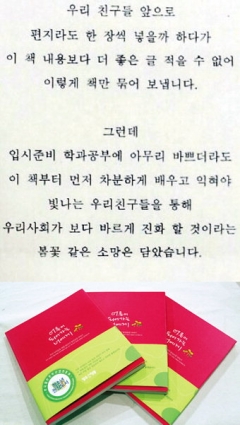 우리 친구들 앞으로
편지라도 한 장씩 넣을까 하다가
이 책 내용보다 더 좋은 글 적을 수 없어
이렇게 책만 묶어 보냅니다.
그런데
입시준비 학과공부에 아무리 바쁘더라도
이 책부터 먼저 차분하게 배우고 익혀야
빛나는 우리친구들을 통해
우리사회가 보다 바르게 진화 할 것이라는
봄꽃 같은 소망은 담았습니다.